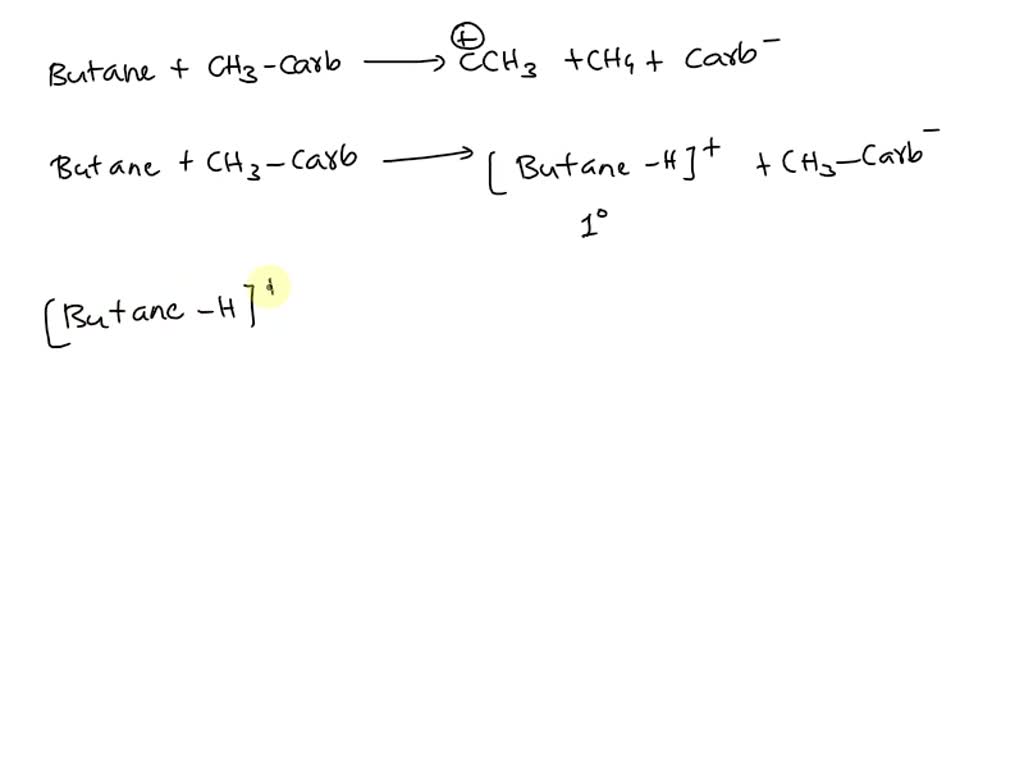 Butane + CH3-Carb ⟶ ⊕CCH3 + CH4 + Carb⁻
Butane + CH3-Carb ⟶ [Butane -H]⁺ + CH3-Carb⁻
1°
[Butane -H]⁺